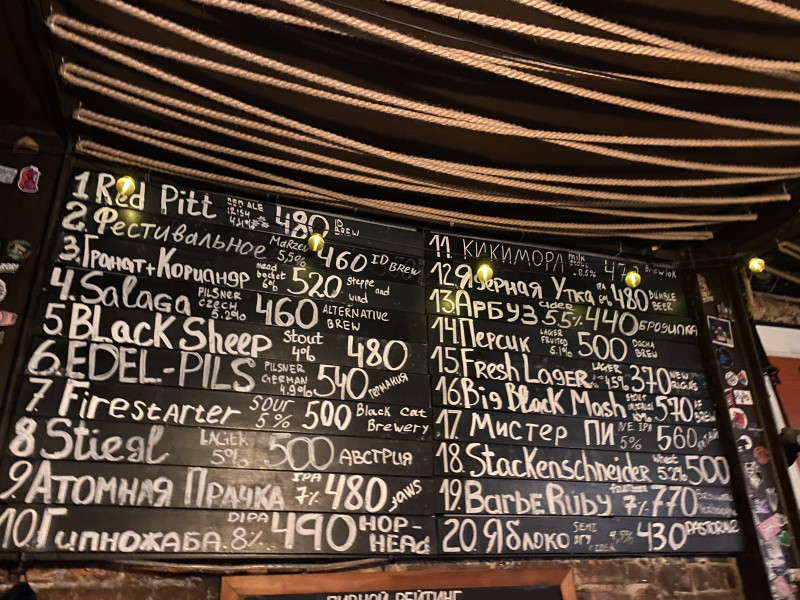 1 Red Pitt RED ALE IRISH 480 ID BREW
2. Фестивальное MARZEN 5,5% 460 ID BREW
3. Гранат+Кориандр mead 6% 520 Steppe and wind
4. Salaga PILSNER CZECH 5.2% 460 ALTERNATIVE BREW
5. BLacK Sheep Stout 4% 480
6. EDEL-PILS PILSNER GERMAN 4.9% 540 ГЕРМАНИЯ
7. Firestarter SOUR 5% 500 Black Cat Brewery
8 Stiegl LAGER 5% 500 АВСТРИЯ
9. Атомная Прачка IPA 7% 480 Jaws
10. Гипножаба DIPA 8% 490 HOP-HEAD
11. КИКИМОРА milk
12. Ядерная Утка IPA 480 BUMBLE BEER
13. АРБУЗ CIDER 5.5% 440 БРОДИЛКА
14. Персик LAGER FRUITED 5.1% 500 DACHA BREW
15. Fresh Lager LAGER 4.5% 370 NEW RIGA'S
16. Big Black Mash STOUT 10% 570 AF BREW
17. Мистер ПИ NE IPA 5% 560
18. Stackenschneider Wheat 5.2% 500
19. Barbe Ruby 7.7% 770
20. Яблоко SEMI DRY 430
ПИВНОЙ РЕЙТИНГ